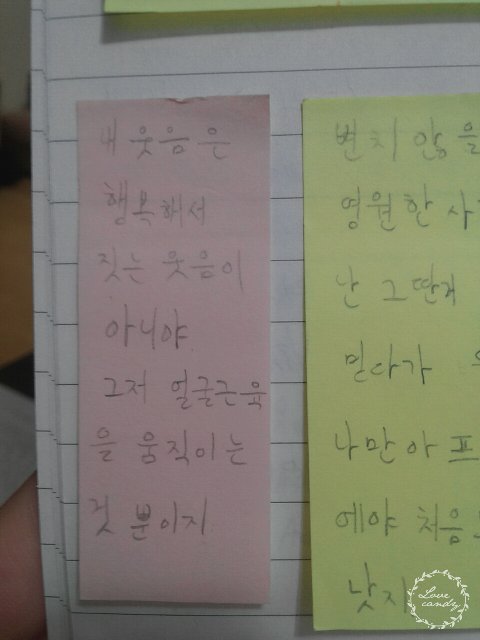 내 웃음은
행복해서
짓는 웃음이
아니야
그저 얼굴근육
을 움직이는
것 뿐이지
변치 않을
영원한 사
난 그딴거
믿다가
나만 아프
에야 처음
낫지
Love
candy